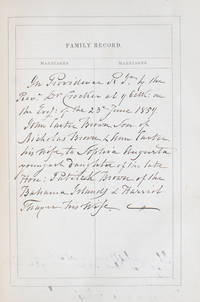 FAMILY RECORD.
MARRIAGES MARRIAGES
In Providence R. I. by the
Revd. Dr. Crocker at 9 oclk: on
the Evg. of the 23d June 1859.
John Carter Brown Son of
Nicholas Brown & Ann Carter
his wife, to Sophia Augusta
youngest daughter of the late
Hon: Patrick Brown of the
Bahama Islands & Harriot
Thayer his Wife.